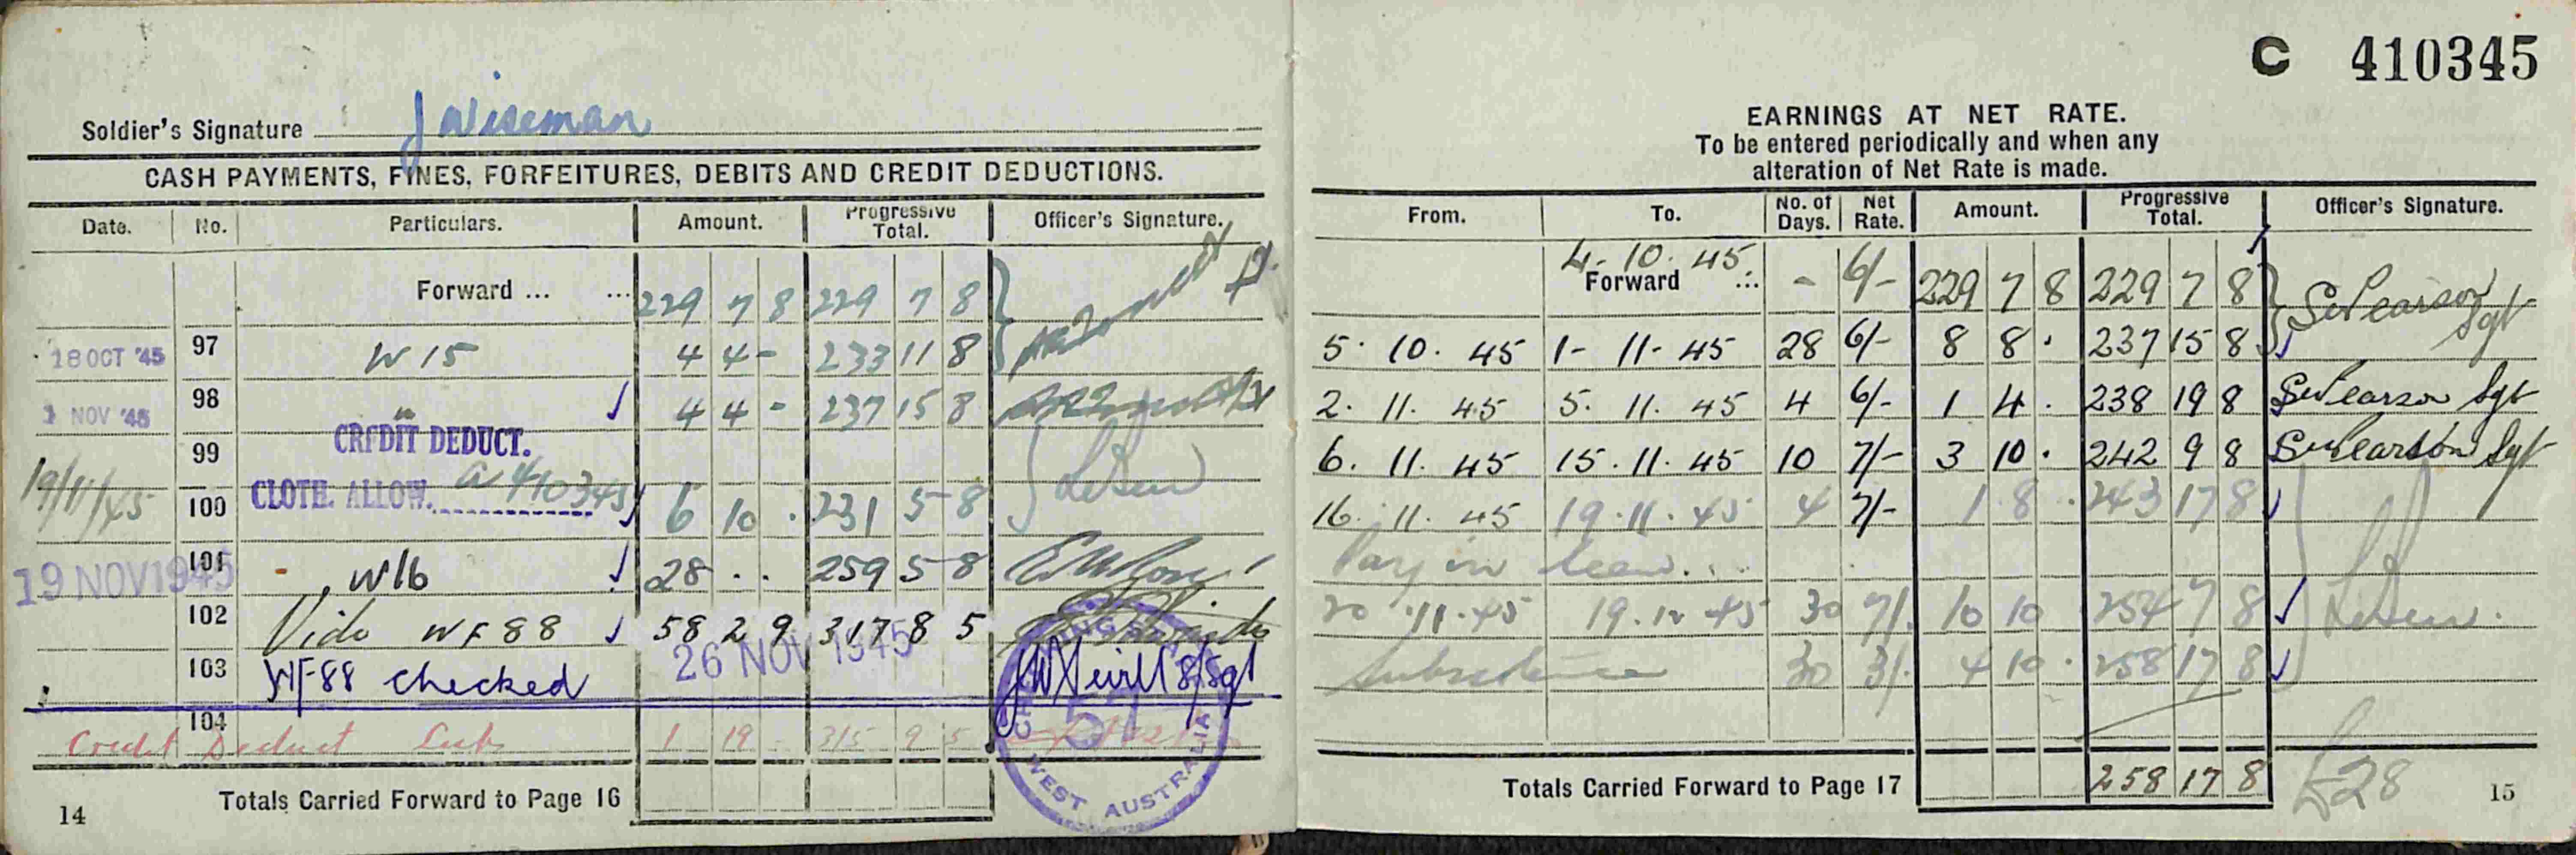 Soldier's Signature J Wiseman
CASH PAYMENTS, FINES, FORFEITURES, DEBITS AND CREDIT DEDUCTIONS.
Date. No. Particulars. Amount. Progressive Total. Officer's Signature.
Forward ... ... 229 7 8 229 7 8
18 OCT '45 97 W 15 4 4 - 233 11 8
1 NOV '45 98 " 4 4 - 237 15 8
99 CREDIT DEDUCT.
19/11/45 100 CLOTH. ALLOW. a 410345 6 10 . 231 5 8
19 NOV 1945 101 W16 28 . . 259 5 8
102 Vide WF88 58 2 9 317 8 5
26 NOV 1945
103 WF88 checked S/Sgt
104 Credit Deduct 1 19 - 315 9 5
WEST AUSTRALIA
Totals Carried Forward to Page 16
14
C 410345
EARNINGS AT NET RATE.
To be entered periodically and when any
alteration of Net Rate is made.
From. To. No. of Days. Net Rate. Amount. Progressive Total. Officer's Signature.
4. 10. 45
Forward ... - 6/- 229 7 8 229 7 8 Pearson Sgt
5. 10. 45 1- 11- 45 28 6/- 8 8 . 237 15 8
2. 11. 45 5. 11. 45 4 6/- 1 4 . 238 19 8 Pearson Sgt
6. 11. 45 15. 11. 45 10 7/- 3 10 . 242 9 8 Pearson Sgt
16. 11. 45 19. 11. 45 4 7/- 1 8 . 243 17 8
Pay in lieu...
20 . 11. 45 19. 12 45 30 7/. 10 10 254 7 8
Subsistence 30 3/. 4 10 . 258 17 8
Totals Carried Forward to Page 17 258 17 8
£28
15